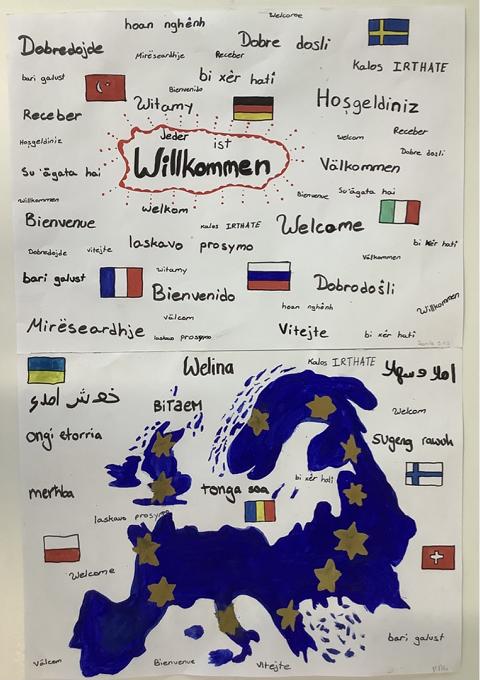 Welcome
hoan nghênh
Dobredojde
Dobre dosli
Mirëseardhje
Receber
Kalos IRTHATE
bari galust
bi xêr hatî
Bienvenido
Witamy
Hoşgeldiniz
Receber
Jeder
ist
Willkommen
welcom
Receber
Hoşgeldiniz
Dobre dosli
Su'ägata hai
Välkommen
willkommen
Bienvenue
Su'ägata hai
Bienvenue
Welkom
kalos IRTHATE
Welcome
laskavo prosymo
bi xêr hatî
Dobredojde
vitejte
Välkommen
bari galust
witamy
Bienvenido
Dobrodošli
Willkommen
hoan nghênh
välcom
Mirëseardhje
laskavo prosymo
Vitejte
bi xêr hatî
Welina
Kalos IRTHATE
BiTAEM
Welcom
ongi etorria
sugeng rawuh
merħba
tonga soa
bi xêr hatî
laskavo prosymo
Welcome
bari galust
Välcom
Bienvenue
Vitejte